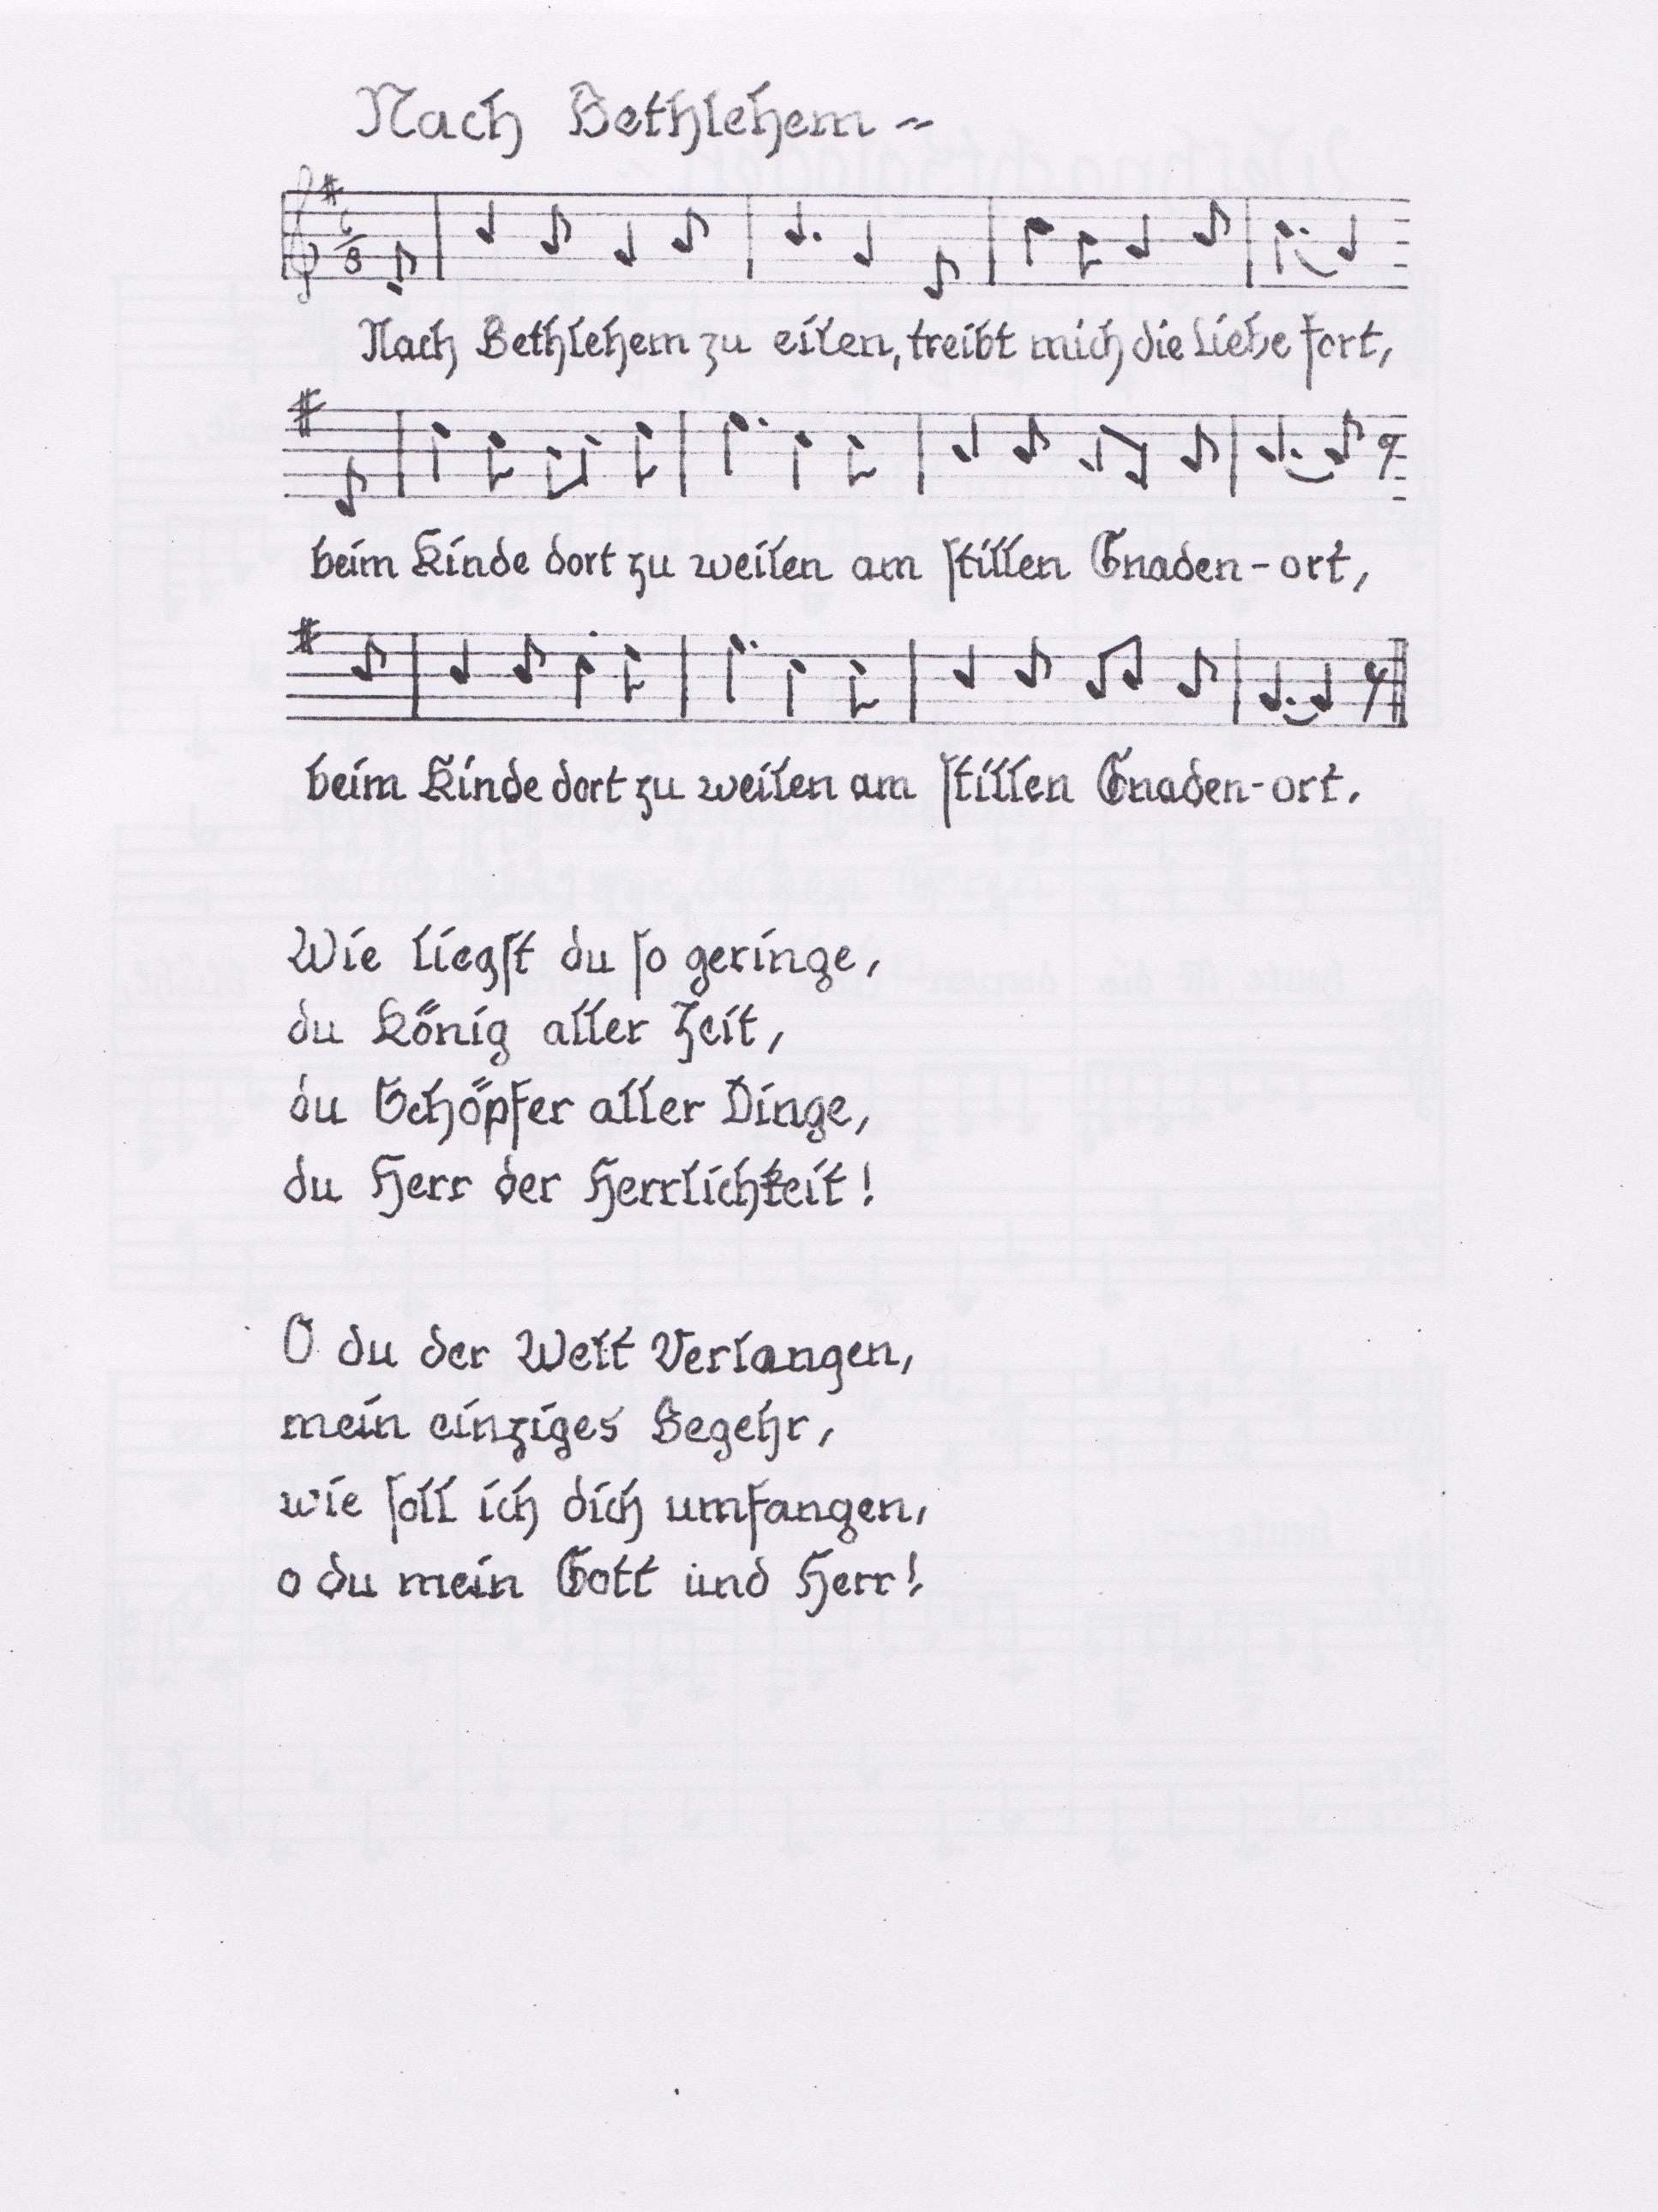 Nach Bethlehem
6
8
Nach Bethlehem zu eilen, treibt mich die Liebe fort,
beim Kinde dort zu weilen am stillen Gnaden-ort,
beim Kinde dort zu weilen am stillen Gnaden-ort.
Wie liegst du so geringe,
du König aller Zeit,
du Schöpfer aller Dinge,
du Herr der Herrlichkeit!
O du der Welt Verlangen,
mein einziges Begehr,
wie soll ich dich umfangen,
o du mein Gott und Herr!